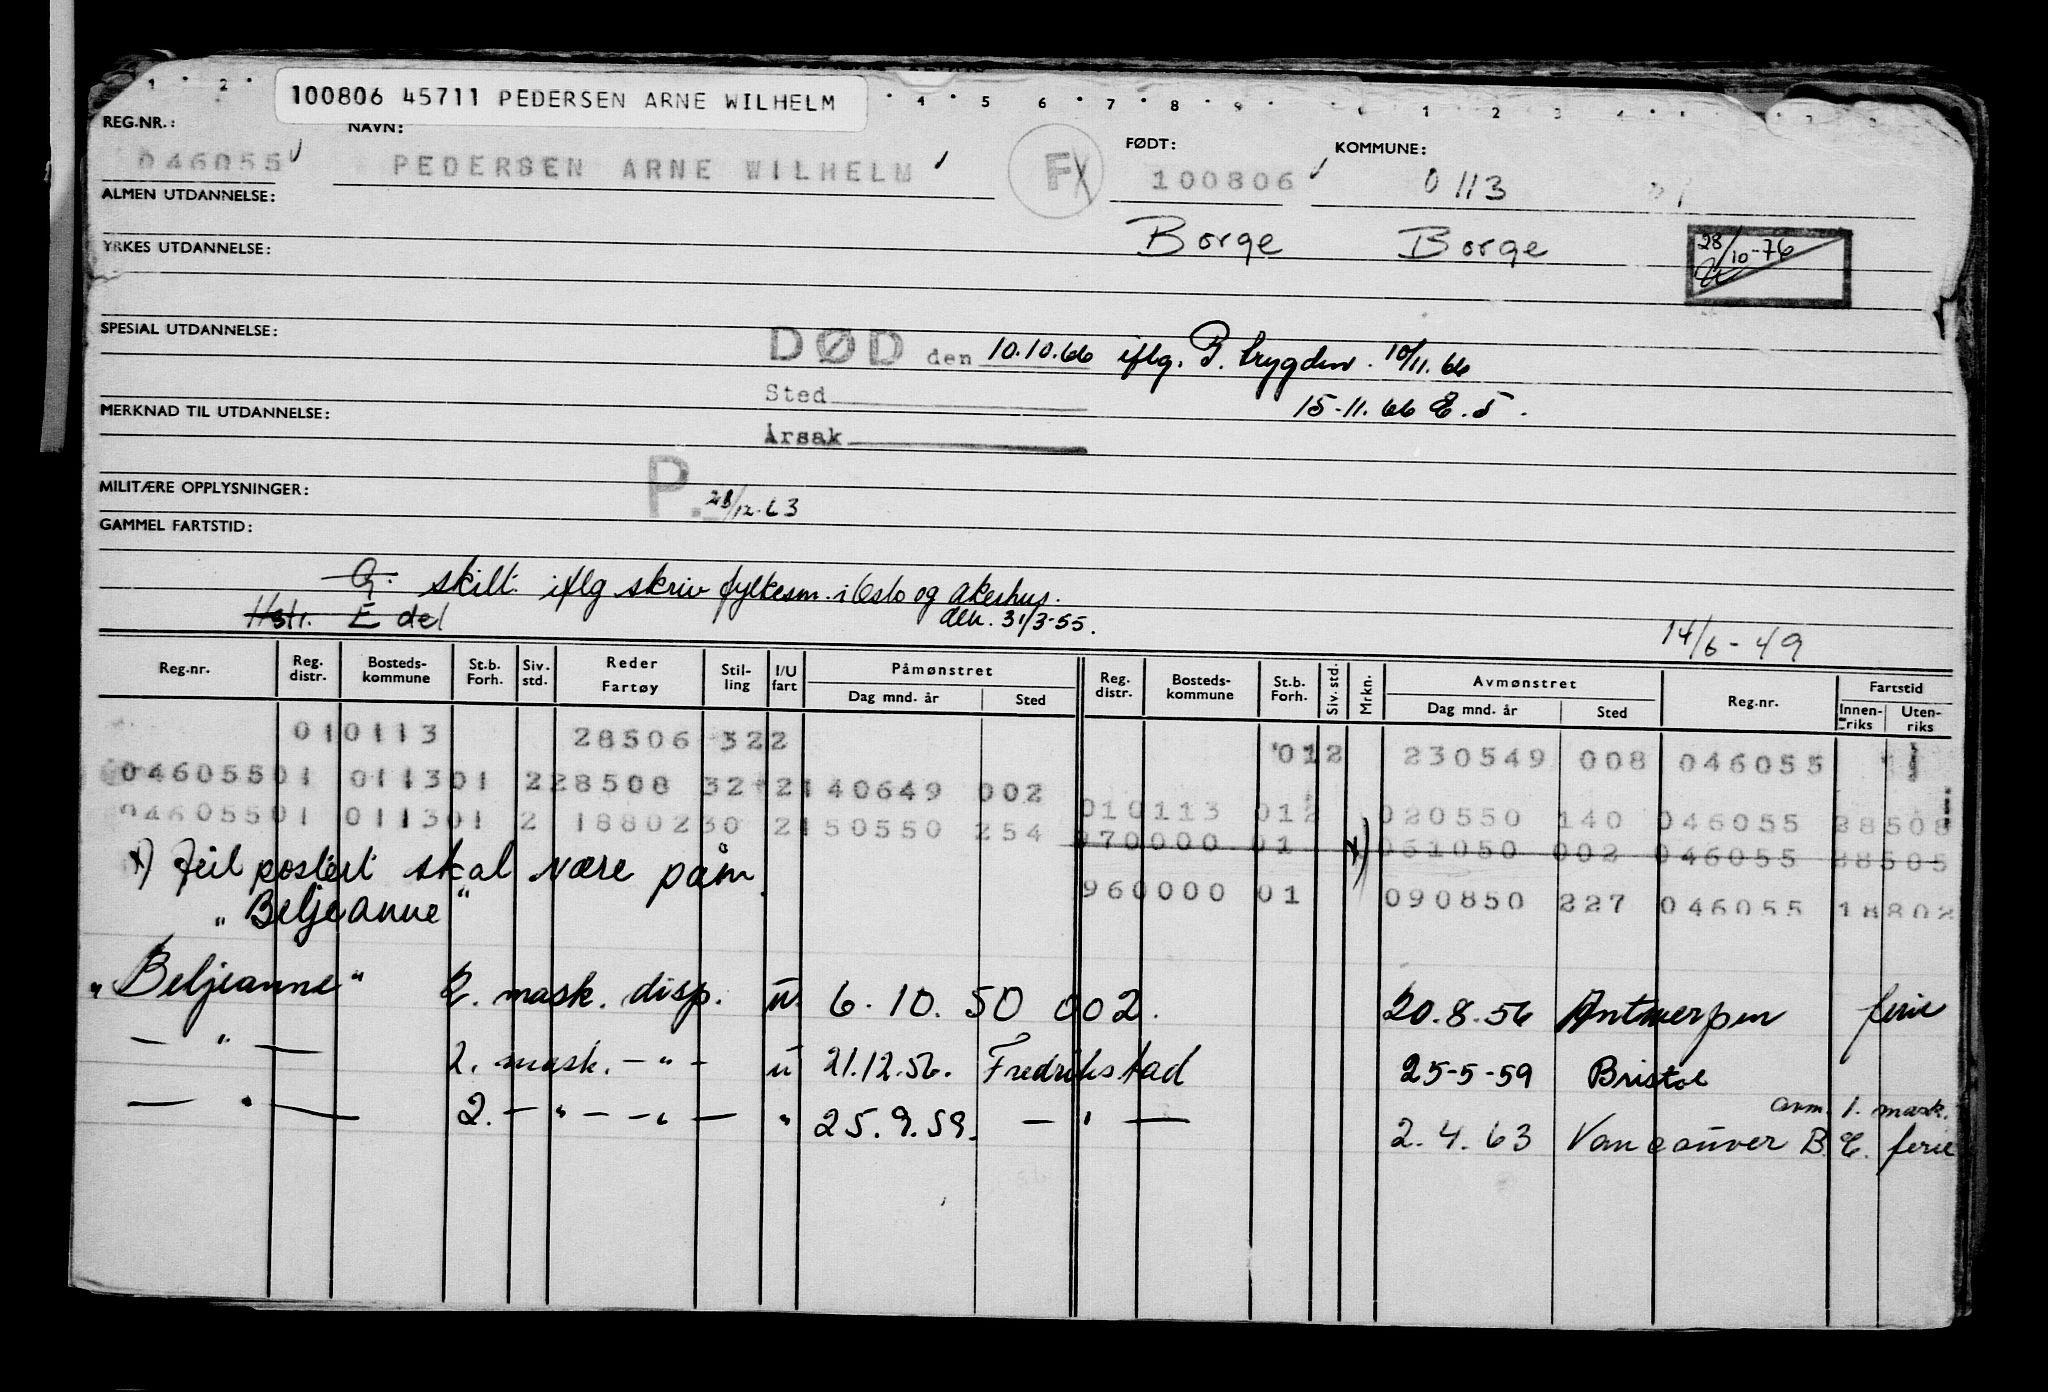 100806 45711 PEDERSEN ARNE WILHELM
REG.NR.: NAVN: FØDT: KOMMUNE:
046055 PEDERSEN ARNE WILHELM F 100806 0113
ALMEN UTDANNELSE:
Borge Borge
YRKES UTDANNELSE:
28/10-76
SPESIAL UTDANNELSE:
DØD den 10.10.66 iflg. P. trygden. 10/11.66
Sted
15-11.66 E.J.
MERKNAD TIL UTDANNELSE:
Årsak
MILITÆRE OPPLYSNINGER:
P. 28/12.63
GAMMEL FARTSTID:
G. skilt iflg skriv fylkesm. i Oslo og Akershus.
Hstr. E del
den. 31/3-55.
14/6-49
Reg.nr. Reg. distr. Bosteds-kommune St.b. Forh. Siv. std. Reder Fartøy Stil-ling I/U fart Påmønstret Dag mnd. år Sted Reg. distr. Bosteds-kommune St.b. Forh. Siv. std. Mrkn. Avmønstret Dag mnd. år Sted Reg.nr. Fartstid Innen-riks Uten-riks
010113 28506 322 012 230549 008 046055
046055 01 0113 01 2 28508 32 2 140649 002 010113 012 020550 140 046055 28508
046055 01 0113 01 2 18802 30 2 150550 254 970000 01 x) 061050 002 046055 28505
x) Feil postert skal være påm.
"Beljeanne"
960000 01 090850 227 046055 18802
"Beljeanne" 2. mask. disp. u 6.10.50 002. 20.8.56 Antwerpen ferie
— " — 2. mask. — " — u 21.12.56. Fredrikstad 25-5-59 Bristol
avm. 1. mask.
— " — 2. — " — — " — " 25.9.59. — " — 2.4.63 Vancouver B.C. ferie